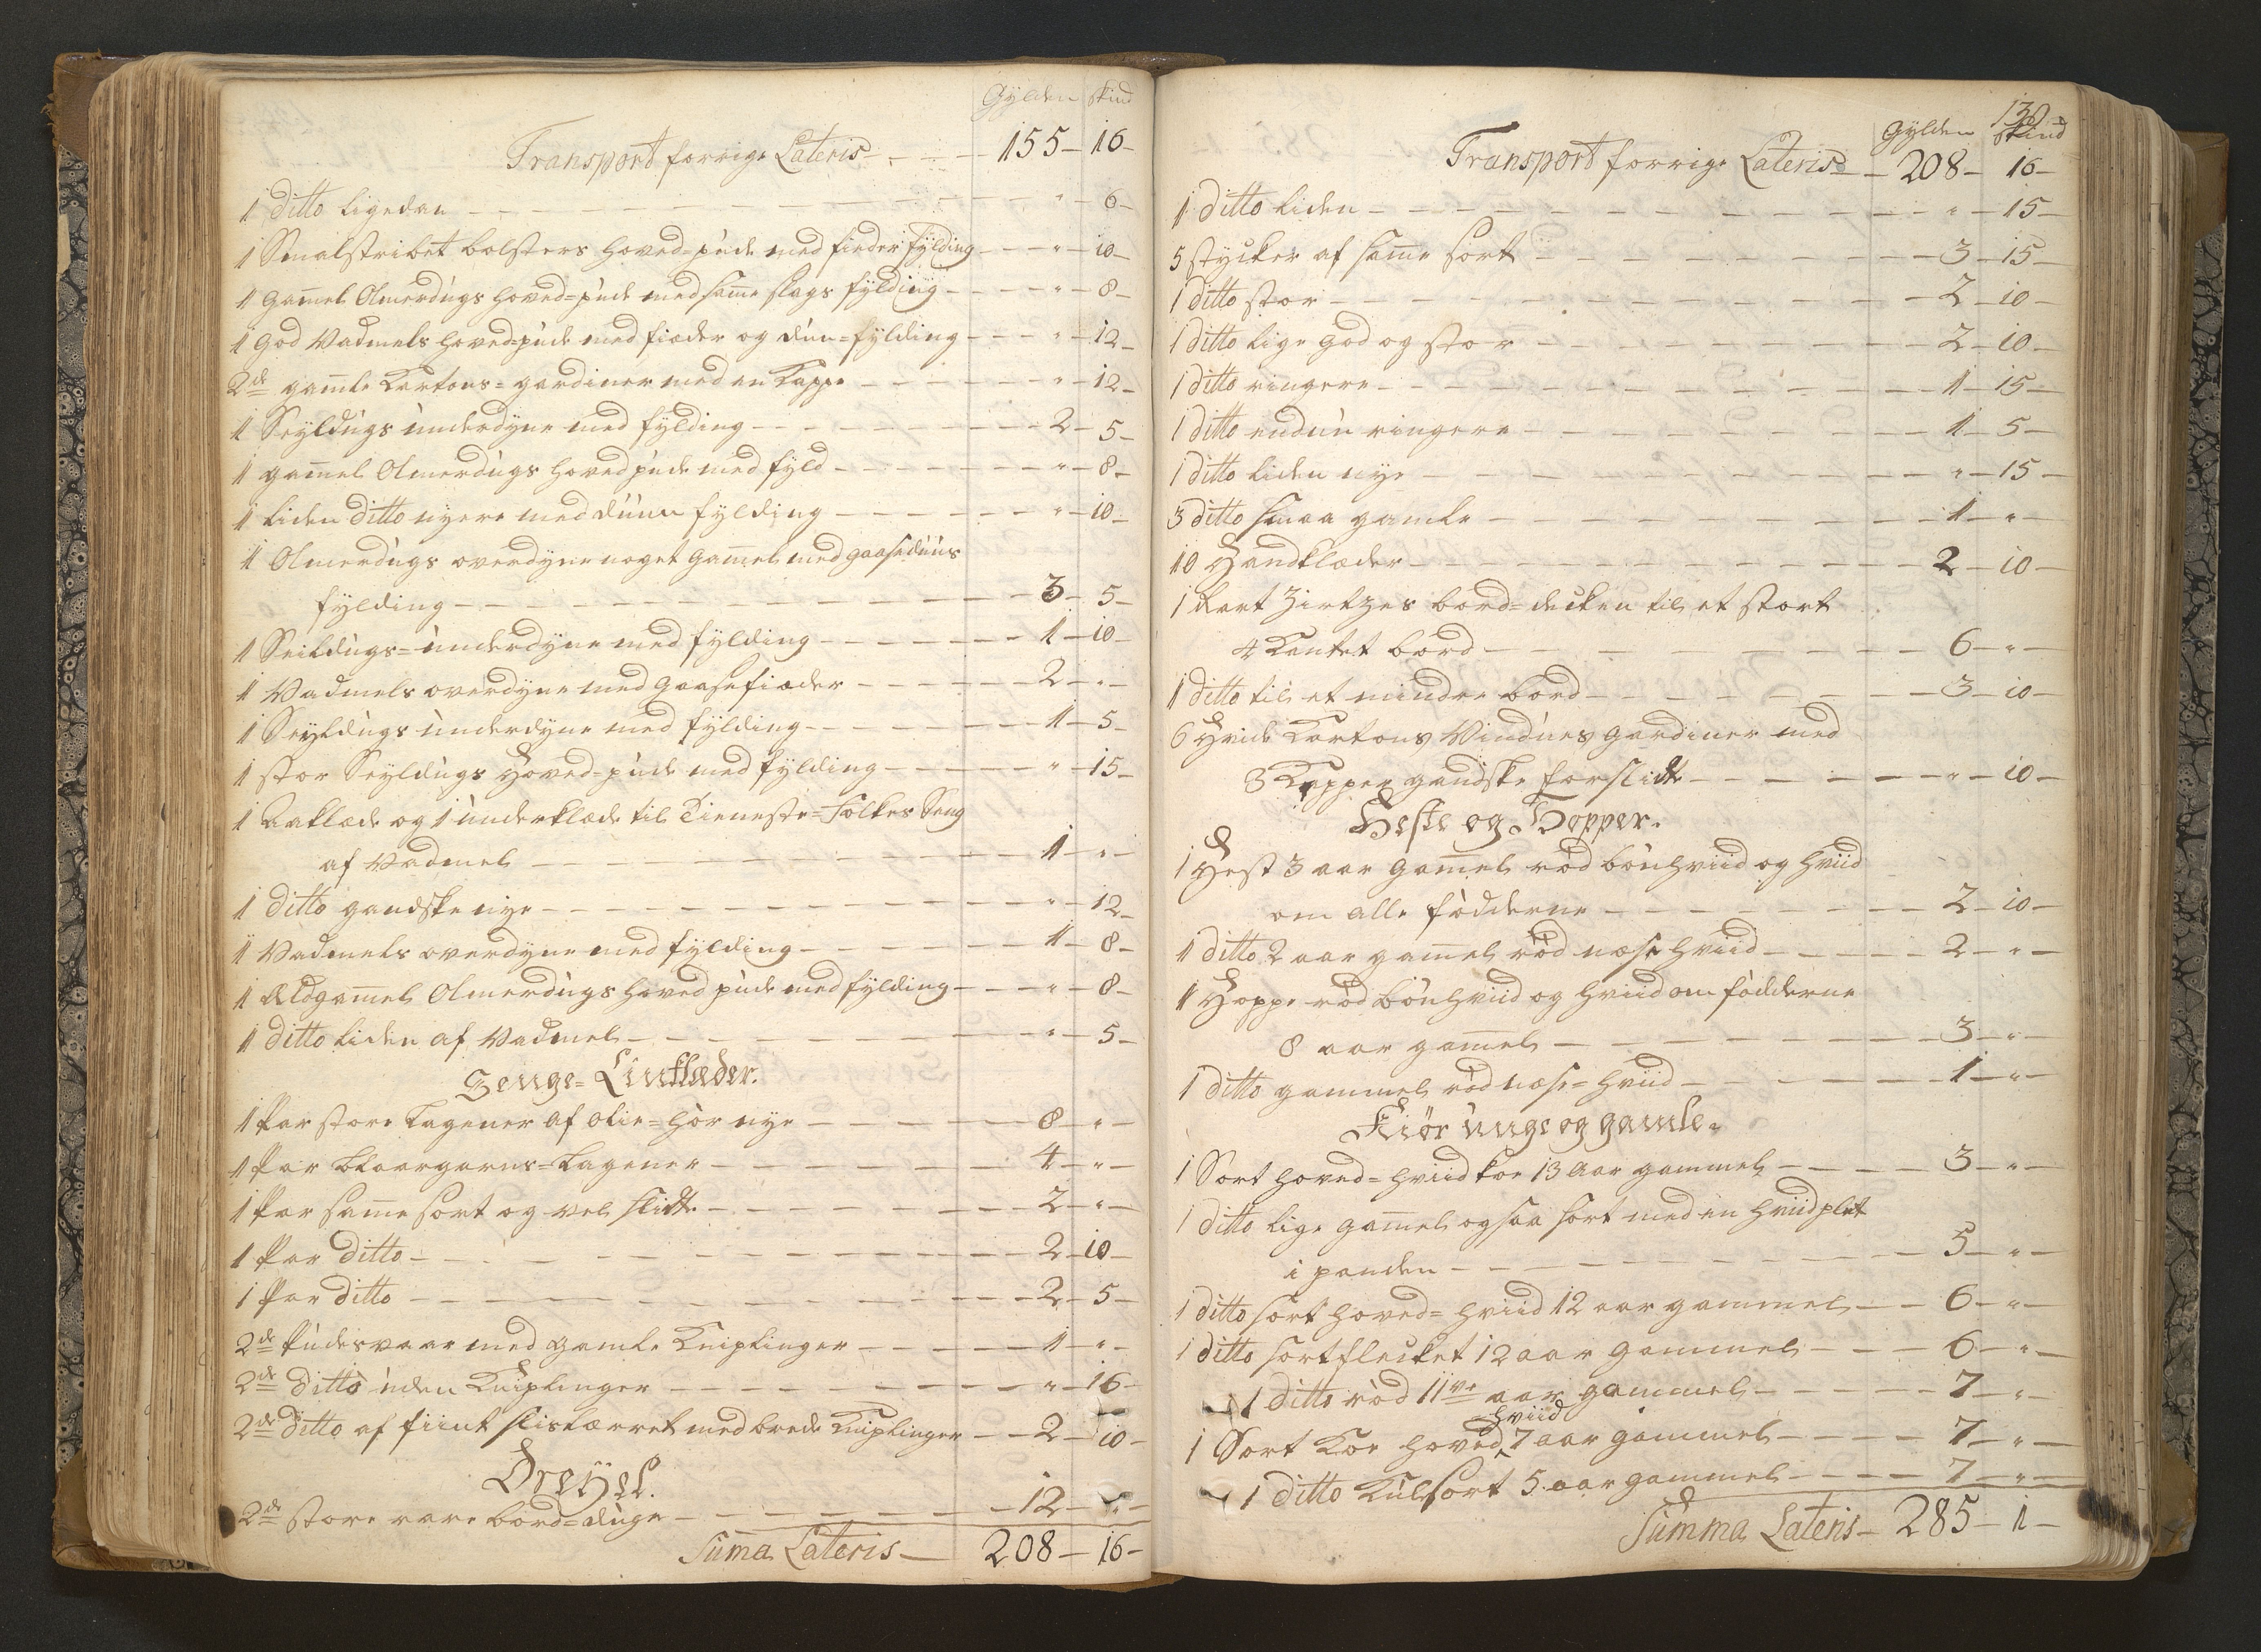 Gylden skind
Transport forrige Lateris 155 16
1 ditto ligedan " 6
1 Smalstribet bolsters hoved-pude med fieder fylding " 10
1 gam̄el Olmerdugs hoved-pude med sam̄e slags fylding " 8
1 god Vadmels hoved-pude med fiæder og duun-fylding " 12
2de gamle Kartons-gardiner med en Kappe " 12
1 Seyldugs underdyne med fylding 2 5
1 gam̄el Olmerdugs hovedpude med fyld " 8
1 liden ditto nyere med duun fylding " 10
1 Olmerdugs overdyne noget gam̄el med gaaseduus
fylding 3 5
1 Seildugs-underdyne med fylding 1 10
1 Vadmels overdyne med gaasefiæder 2 "
1 Seyldugs underdyne med fylding 1 5
1 stor Seyldugs Hoved-pude med fylding " 15
1 Aaklæde og 1 underklæde til Tieneste-Folkes Seng
af Vadmel 1 "
1 ditto gandske nye " 12
1 Vadmels overdyne med fylding 1 8
1 Ældgam̄el Olmerdugs hovedpude med fylding " 8
1 ditto liden af Vadmel " 5
Senge-Linklæder.
1 Par store Lagener af olie-hør nye 8 "
1 Par blaargarns-Lagener 4 "
1 Par sam̄e sort og vel slidt 2 "
1 Par ditto 2 10
1 Par ditto 2 5
2de Pudesvaar med gamle Kniplinger 1 "
2de ditto uden Kniplinger " 16
2de ditto af fiint slistærret med brede Kniplinger 2 10
Dreyel.
2de store rare bord-duge 12 "
Sum̄a Lateris 208 16
130
Gylden skind
Transport forrige Lateris 208 16
1 ditto liden " 15
5 stycker af sam̄e sort 3 15
1 ditto stor 2 10
1 ditto lige god og stor 2 10
1 ditto ringere 1 15
1 ditto endnu ringere 1 5
1 ditto liden nye " 15
3 ditto smaa gamle 1 "
10 Handklæder 2 10
1 Rart Zirtzes bord-decken til et stort
4 Kantet bord 6 "
1 ditto til et mindre bord 3 10
6 Hvide Kartons Vindues gardiner med
3 Kapper gandske forslidt " 10
Heste og Hopper.
1 Hest 3 aar gam̄el rød bønhviid og hviid
om alle fødderne 2 10
1 ditto 2 aar gam̄el rød næsehviid 2 "
1 Hoppe rød bønhviid og hviid om fødderne
8 aar gam̄el 3 "
1 ditto gammel rød næse-hviid 1 "
Kiør unge og gamle.
1 Sort hoved-hviid koe 13 aar gammel 3 "
1 ditto lige gam̄el ogsaa sort med en hviid plet
i panden 5 "
1 ditto sort hoved-hviid 12 aar gammel 6 "
1 ditto sortflecket 12 aar gammel 6 "
1 ditto rød 11ve aar gammel 7 "
1 Sort Koe hoved hviid 7 aar gammel 7 "
1 ditto Kulsort 5 aar gammel 7 "
Summa Lateris 285 1